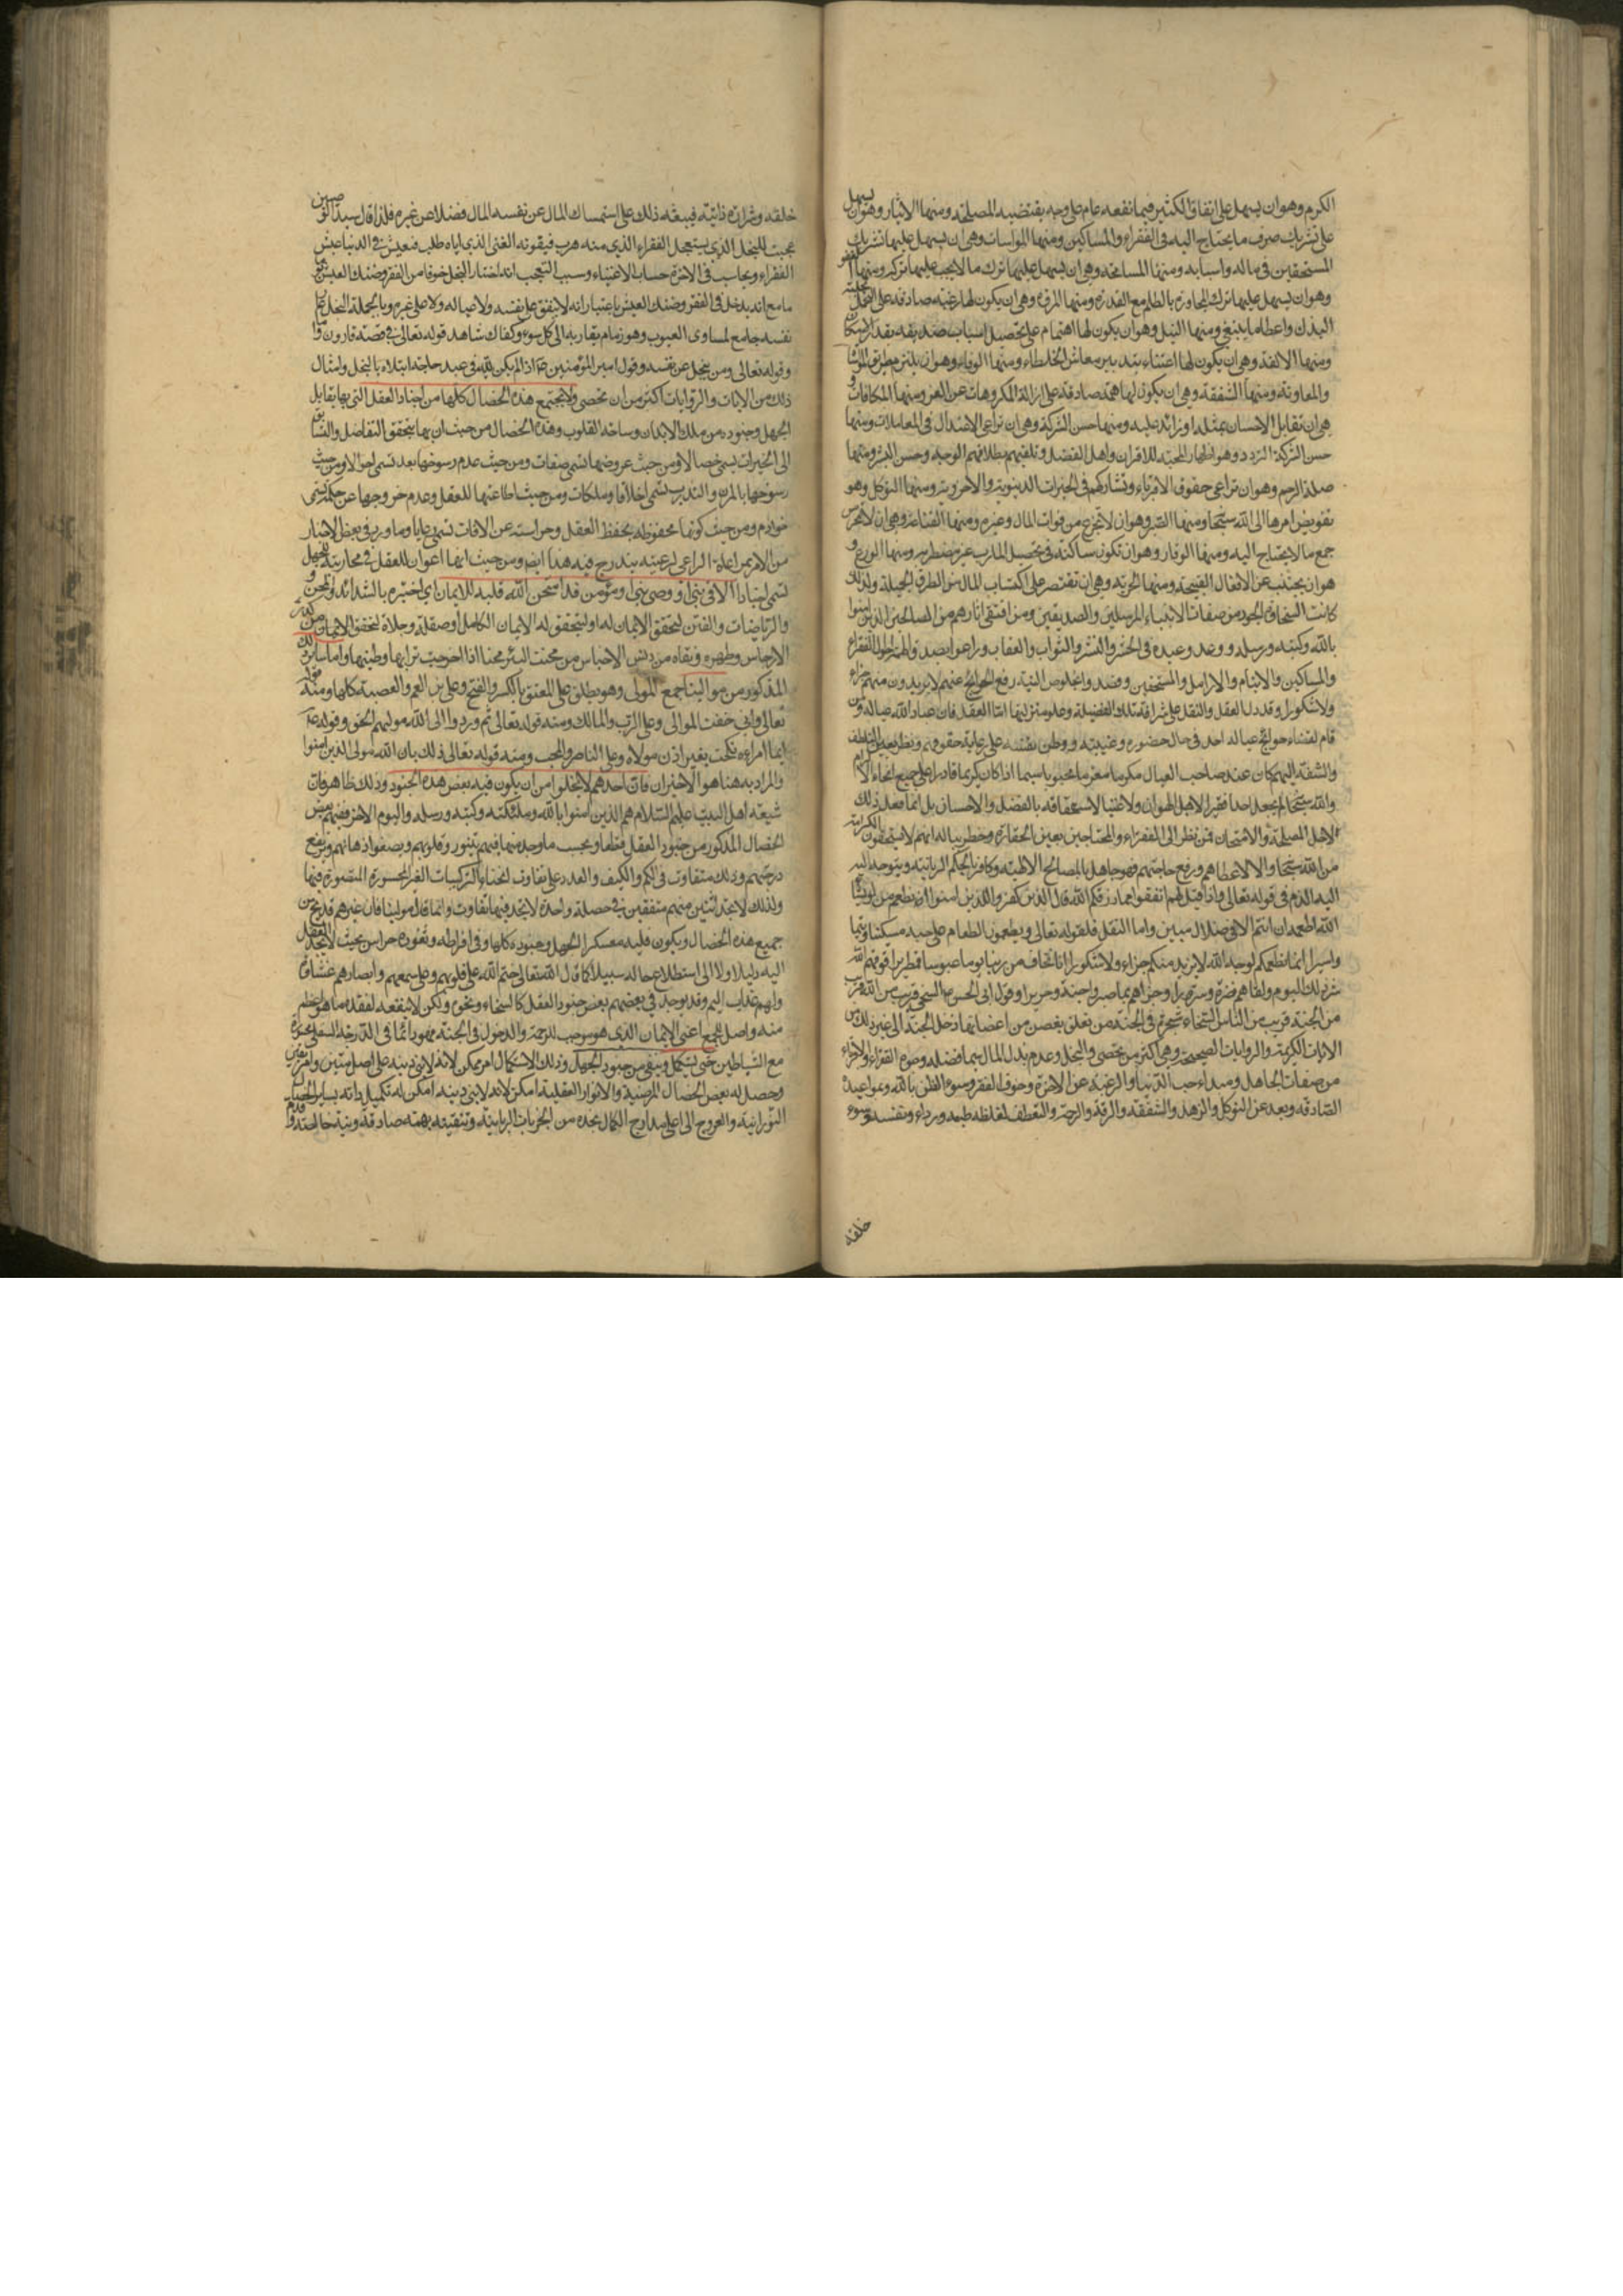 الكرم وهو ان يسهل على انفاق الكثير فيما نفعه عام على وجه يقتضيه المصلحة ومنها الايثار وهو ان يسهل
على صرف ما يحتاج اليه فى الفقراء والمساكين ومنها المواسات وهى ان يسهل عليها تشريك
المستحقين فى ماله واسبابه ومنها المسامحة وهى ان يسهل عليها ترك ما لا يجب عليها تركه ومنها العفو
وهو ان يسهل عليها ترك المجاوزة بالظلم مع القدرة ومنها المروة وهى ان يكون لها رغبة صادقة على التحلى بحلية
البذل واعطاء ما ينبغى ومنها النبل وهو ان يكون لها اهتمام على تحصيل
ومنها الالفة وهى ان يكون لها اعتناء بتدبير معاش الخلطاء ومنها الوفاء وهو ان يلتزم طريق المواساة
والمعاونة ومنها الشفقة وهى ان يكون لها همة صادقة على ازالة المكروهات عن الغير ومنها المكافات و
هى ان تقابل الاحسان بمثله او زائد عليه ومنها حسن الشركة وهى ان تراعى الاعتدال فى المعاملات ومنها
حسن الشركة التودد وهو اظهار المحبة للاقران واهل الفضل وتلقيهم بطلاقة الوجه وحسن البشر ومنها
صلة الرحم وهو ان تراعى حقوق الاقرباء وتشاركهم فى الخيرات الدينوية والاخروية ومنها التوكل وهو
تفويض امرها الى الله سبحانه ومنها الصبر وهو ان لا تجزع من فوات المال وغيره ومنها القناعة وهى ان لا تحرص
جمع ما لا يحتاج اليه ومنها الوقار وهو ان تكون ساكنة فى تحصيل المارب غير مضطربة ومنها الورع و
هو ان يجتنب عن الافعال القبيحة ومنها الحرية وهى ان تقتصر على اكتساب المال من الطرق الجميلة ولذلك
كانت السخاوة والجود من صفات الانبياء المرسلين والصديقين ومن اقتفى اثارهم من الصالحين الذين امنوا
بالله وكتبه ورسله ووعد وعيده فى الحشر والنشر والثواب والعقاب وراعوا بصدق الفقراء
والمساكين والايتام والارامل والمستحقين وقصدوا بخلوص النية رفع الحوائج عنهم لا يريدون منهم جزاء
ولا شكورا وقد دل العقل والنقل على شرافة تلك الفضيلة وعلو منزلتها اما العقل فان عباد الله عياله ومن
قام لقضاء حوائج عيال احد فى حال حضوره وغيبته ووطن نفسه على رعاية حقوقهم ونظر بعين اللطف
والشفقة اليهم كان عند صاحب العيال مكرما معززا محبوبا سيما اذا كان كريما قادرا على جميع انحاء الاكرام
والله سبحانه لم يجعل احدا فقيرا لاهل الهوان ولا غنيا لاستحقاقه بالفضل والاحسان بل انما فعل ذلك
لاهل المصلحة والامتحان فمن نظر الى الفقراء والمحتاجين بعين الحقارة وخطر بباله انهم لا يستحقون الكرامة
من الله سبحانه والا لاعطاهم ورفع حاجتهم فهو جاهل بالمصالح الالهية وكافر بالحكم الربانية ويتوجه اليه
اليه الذم فى قوله تعالى واذا قيل لهم انفقوا مما رزقكم الله قال الذين كفروا للذين امنوا انطعم من لو يشاء
الله اطعمه ان انتم الا فى ضلال مبين واما النقل فلقوله تعالى ويطعمون الطعام على حبه مسكينا ويتيما
واسيرا انما نطعمكم لوجه الله لا نريد منكم جزاء ولا شكورا انا نخاف من ربنا يوما عبوسا قمطريرا فوقيهم الله
شر ذلك اليوم ولقاهم نضرة وسرورا وجزاهم بما صبروا جنة وحريرا وقول ابى الحسن السخى قريب من الله قريب
من الجنة قريب من الناس السخاء شجرة فى الجنة من تعلق بغصن من اغصانها دخل الجنة الى غير ذلك من
الايات الكريمة والروايات الصحيحة وهى اكثر من ان تحصى والبخل وعدم بذل المال بما فضله وصوم الفقراء والاخاء
من صفات الجاهل ومبداه حب الدنيا والرغبة عن الاخرة وخوف الفقر وسوء الظن بالله وبمواعيده
الصادقة وبعده عن التوكل والزهد والشفقة والرقة والرحمة والتعطف لغلظة طبعه ورداءة نفسه وسوء
خلقه
خلقه وشرارة ذاتية فيبعثه ذلك على استمساك المال عن نفسه فضلا عن غيره فلذا قال سيد الوصيين
عجبت للبخيل الذى يستعجل الفقر الذى منه هرب ويفوته الغنى الذى اياه طلب فيعيش فى الدنيا عيش
الفقراء ويحاسب فى الاخرة حساب الاغنياء وسبب التعجب انه اختار البخل خوفا من الفقر وضنك العيش
مع انه يدخل فى الفقر وضنك العيش باعتبار انه لا ينفق على نفسه ولا عياله ولا على غيره وبالجملة البخل
نفسه جامع لمساوى العيوب وهو زمام يقاد به الى كل سوء وكفاك شاهدا قوله تعالى فى قصة قارون
وقوله تعالى ومن يبخل عن نفسه وقول امير المؤمنين ع اذا لم يكن لله فى عبد حاجة ابتلاه بالبخل وامثال
ذلك من الايات والروايات اكثر من ان تحصى ولا تجتمع هذه الخصال كلها من اجناد العقل التى بها يقابل
الجهل وجنوده من ملك الابدان وساحة القلوب وهذه الخصال من حيث ان بها يتحقق التفاضل
الى الخيرات يسمى خصالا ومن حيث عروضها تسمى صفات ومن حيث عدم رسوخها بعد تسمى احوالا ومن حيث
رسوخها بالمرن والتدرب تسمى اخلاقا وملكات ومن حيث اطاعتها للعقل وعدم خروجها عن حكمه تسمى
خوادم ومن حيث كونها محفوظة بحفظ العقل وحراسته عن الافات تسمى رعايا وما ورد فى بعض الاخبار
من الامر بمراعاة الراعى لرعيته يندرج فيه هذا ايضا ومن حيث انها اعوان للعقل فى محاربة الجهل
تسمى اجنادا الا فى نبى او وصى نبى او مؤمن قد امتحن الله قلبه للايمان اى اختبره بالشدائد والمحن و
والرياضات والفتن ليتحقق الايمان له او ليتحقق له الايمان الكامل او صقله وجلاه لتحقق الايمان
الارجاس وطهره ونقاه من دنس الاحباس من محنت البئر محنا اذا اخرجت ترابها وطينها واما سائر ذلك
المذكور من موالينا جمع المولى وهو يطلق على المعتق بالكسر والفتح وعلى ابن العم والعصبة كلها ومنه قوله
تعالى وانى خفت الموالى وعلى الرب والمالك ومنه قوله تعالى ثم ردوا الى الله موليهم الحق وقوله ع
ايما امراءة نكحت بغير اذن مولاه وعلى الناصر والمحب ومنه قوله تعالى ذلك بان الله مولى الذين امنوا
والمراد به هنا هو الاخيران فان احدهم لا يخلوا من ان يكون فيه بعض هذه الجنود وذلك ظاهر فان
شيعة اهل البيت عليهم السلام هم الذين امنوا بالله وملئكته وكتبه ورسله واليوم الاخر ففيهم بعض
الخصال المذكور من جنود العقل قطعا وبحسب ما وجد منها فيهم يتنور قلوبهم ويصفو اذهانهم ويرفع
درجتهم وذلك متفاوت فى الكم والكيف والعدد على تفاوت انحاء التركيبات الغير المحصورة المتصورة فيها
ولذلك لا تجد اثنين منهم متفقين فى خصلة واحدة لا تجد فيها تفاوت وانما قال موالينا فان غيرهم قد يخلو من
جميع هذه الخصال ويكون قلبه معسكر الجهل وجنوده كلها وفى افراطه وثغوره حراس بحيث لا يجد العقل
اليه دليلا ولا الى استطلاع حاله سبيلا كما قال الله تعالى ختم الله على قلوبهم وعلى سمعهم وابصارهم غشاوة
ولهم عذاب اليم وقد يوجد فى بعضهم بعض جنود العقل كالسخاء ونحوه ولكن لا ينفعه لفقده ما هو اعظم
منه واصل للجميع اعنى الايمان الذى هو موجب للرحمة والدخول فى الجنة
مع الشياطين حتى يستكمل وينقى من جنود الجهل وذلك الاستكمال امر ممكن لانه لابتناء دينه على اصل متين وامر يقين
وحصل له بعض الخصال المرضية والانوار العقلية امكن لانه لابتنى دينه امكن له تكميل ذاته بساير الخصال
النورانية والعروج الى اعلى مدارج الكمال بحده من الجذبات الربانية وتنقيته بهمة صادقة ونية خالصة